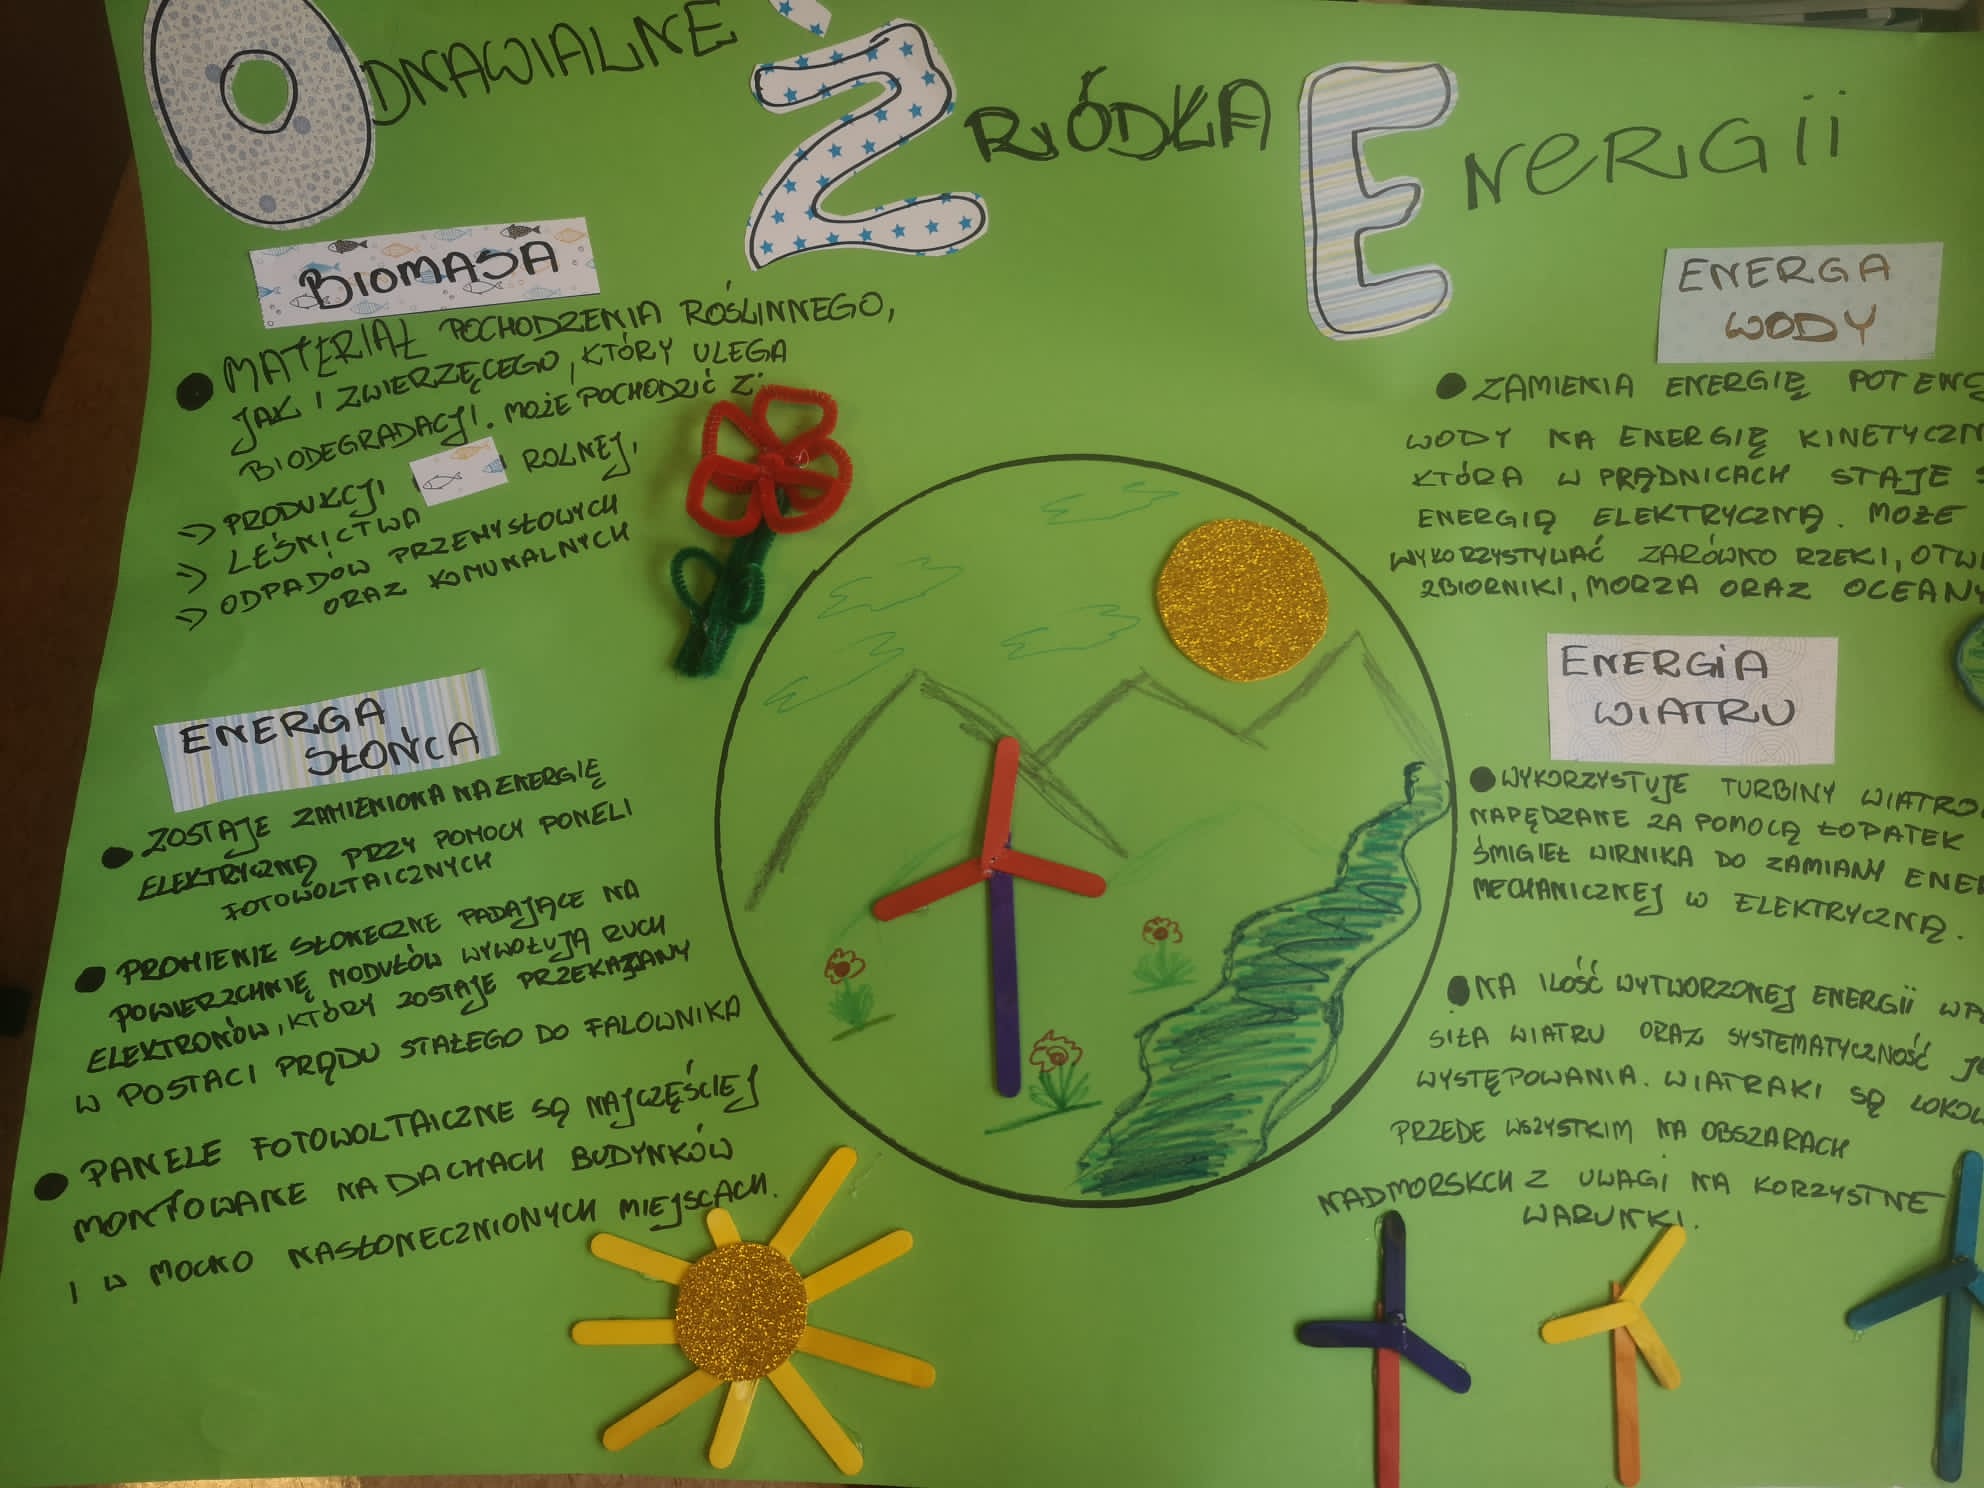 ODNAWIALNE ŹRÓDŁA ENERGII
BIOMASA
MATERIAŁ POCHODZENIA ROŚLINNEGO,
JAK I ZWIERZĘCEGO, KTÓRY ULEGA
BIODEGRADACJI. MOŻE POCHODZIĆ Z:
=> PRODUKCJI ROLNEJ,
=> LEŚNICTWA
=> ODPADÓW PRZEMYSŁOWYCH
ORAZ KOMUNALNYCH
ENERGA
SŁOŃCA
ZOSTAJE ZAMIENIONA NA ENERGIĘ
ELEKTRYCZNĄ PRZY POMOCY PONELI
FOTOWOLTAICZNYCH
PROMIENIE SŁONECZNE PADAJĄCE NA
POWIERZCHNIĘ MODUŁÓW WYWOŁUJĄ RUCH
ELEKTRONÓW, KTÓRY ZOSTAJE PRZEKAZANY
W POSTACI PRĄDU STAŁEGO DO FALOWNIKA
PANELE FOTOWOLTAICZNE SĄ NAJCZĘŚCIEJ
MONTOWANE NA DACHACH BUDYNKÓW
I W MOCNO NASŁONECZNIONYCH MIEJSCACH.
ENERGA
WODY
ZAMIENIA ENERGIĘ POTENC
WODY NA ENERGIĘ KINETYCZN
KTÓRA W PRĄDNICACH STAJE S
ENERGIĄ ELEKTRYCZNĄ. MOŻE
WYKORZYSTYWAĆ ZARÓWNO RZEKI, OTW
ZBIORNIKI, MORZA ORAZ OCEANY
ENERGIA
WIATRU
WYKORZYSTUJE TURBINY WIATRO
NAPĘDZANE ZA POMOCĄ ŁOPATEK
ŚMIGIEŁ WIRNIKA DO ZAMIANY ENER
MECHANICZNEJ W ELEKTRYCZNĄ.
NA ILOŚĆ WYTWORZONEJ ENERGII WP
SIŁA WIATRU ORAZ SYSTEMATYCZNOŚĆ JE
WYSTĘPOWANIA. WIATRAKI SĄ LOKOW
PRZEDE WSZYSTKIM NA OBSZARACH
NADMORSKCH Z UWAGI NA KORZYSTNE
WARUNKI.